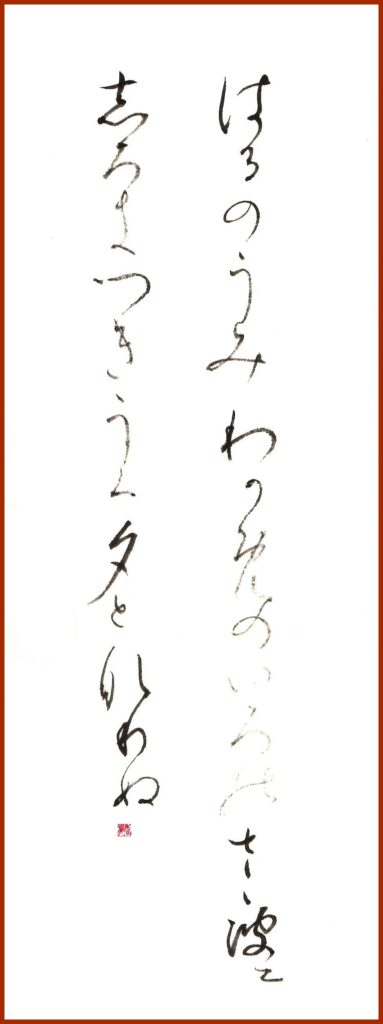 はるのうみわかのいろのさゝ波に
志ろきつきうく夕となりぬ